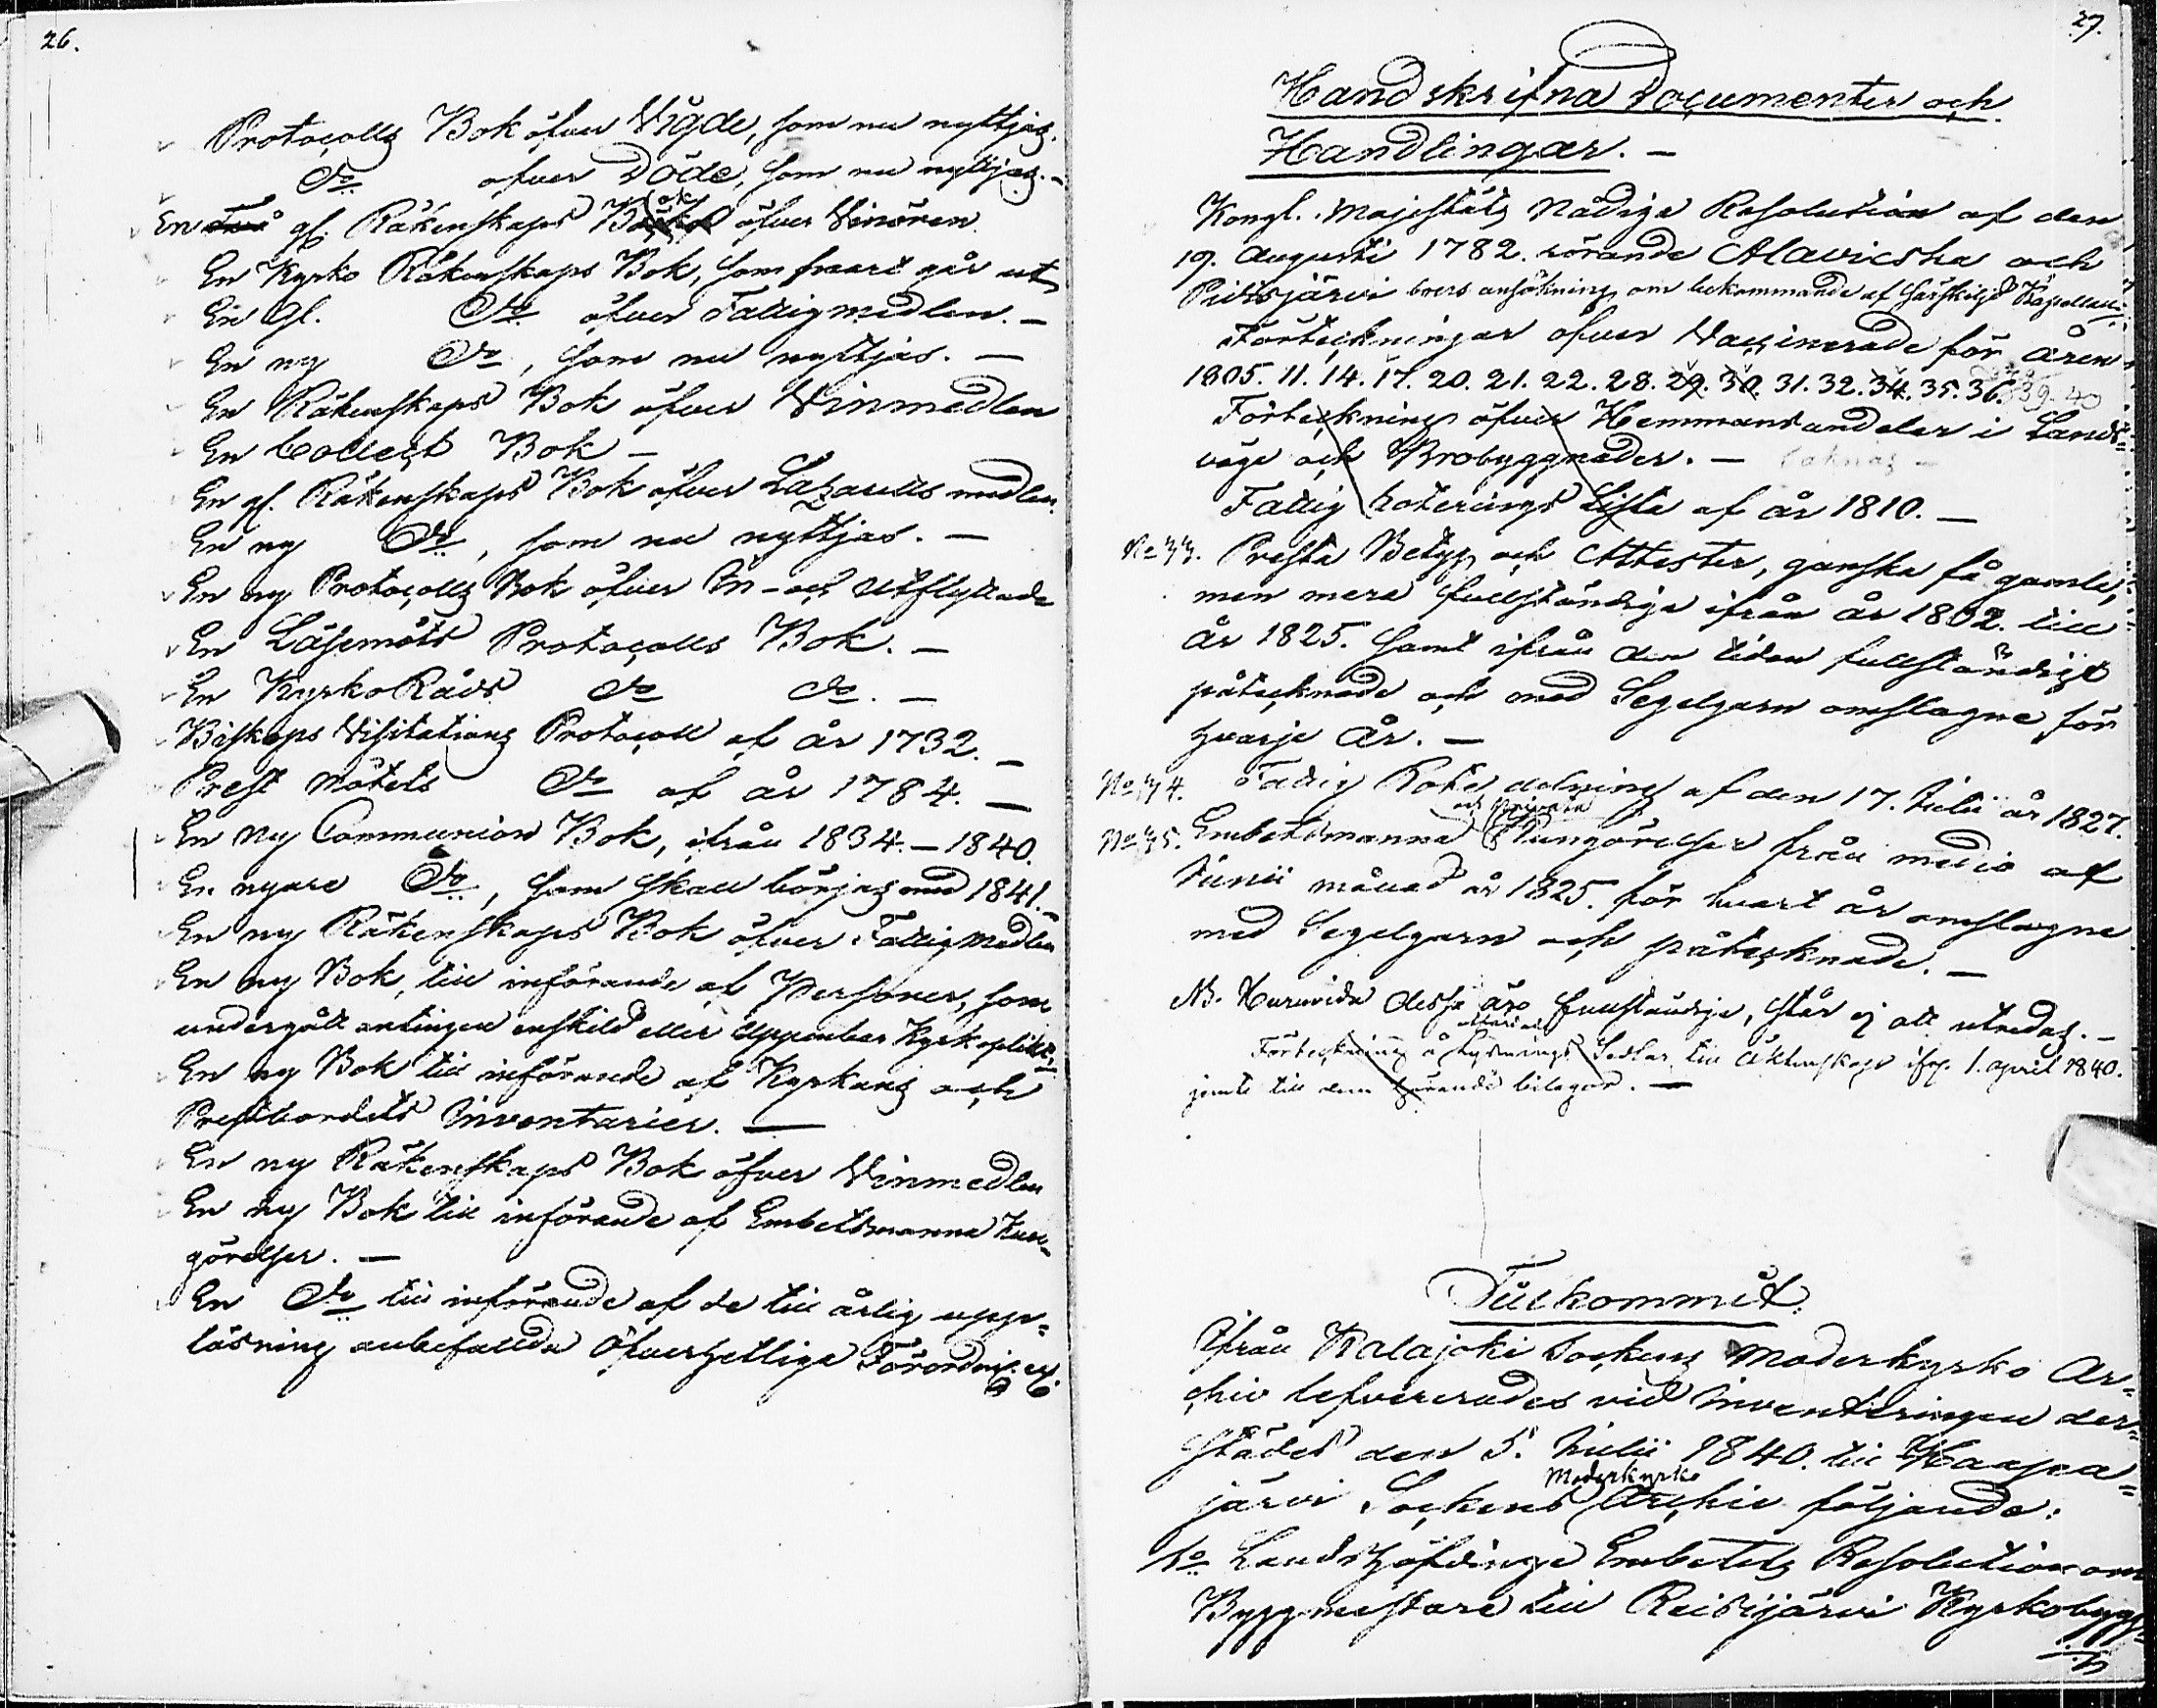 26.
Protocolls Bok öfver Vigde, som nu nyttjas.
Do öfver Döde, som nu nyttjas. -
En gl. Räkenskaps Bok öfver Vinören.
En Kyrko Räkenskaps Bok, som snart går ut
En Gl. Do öfver Fattigmedlen. -
En ny Do, som nu nyttjas. -
En Räkenskaps Bok öfver Vinmedlen
En Collect Bok -
En gl. Räkenskaps Bok öfver Lazaretts medlen.
En ny Do, som nu nyttjas. -
En ny Protocolls Bok öfver In- och Utflyttade
En Läsemöts Protocolls Bok. -
En KyrkoRåds do do. -
Biskops Visitations Protocoll af år 1732. -
Prest mötets Do af år 1784. -
En ny Communion Bok, ifrån 1834. - 1840.
En nyare Do, som skall börjas med 1841. -
En ny Räkenskaps Bok öfver Fattig Medlen
En ny Bok, till införande af Personer, som
undergått antingen enskild eller uppenbar Kyrkoplikt.
En ny Bok till införande af Kyrkans och
Prestbordets Inventarier. -
En ny Räkenskaps Bok öfver Vinmedlen
En ny Bok till införande af Embetsmanna Kun-
görelser. -
En Do till införande af de till årlig upp=
läsning anbefallda Öfverhetliga
27.
Handskrifna Documenter och
Handlingar. -
Kongl. Majestäts Nådiga Resolution af den
19. Augusti 1782. rörande Alavieska och
Pidisjärvi boers ansökning om bekommande af särskild
Förteckningar öfver Vaccinerade för åren
1805. 11. 14. 17. 20. 21. 22. 28. 29. 30. 31. 32. 34. 35. 36. 39. 40
Förteckning öfver Hemmansandelar i Lands=
vägs och Brobyggnader. - saknas -
Fattig Roterings Lista af år 1810. -
No 33. Presta Betyg och Attester, ganska få gamle,
men mera fullständiga ifrån år 1802. till
år 1825. samt ifrån den tiden fullständigt
påtecknade och med Segelgarn omslagne för
hvarje År. -
No 34. Fattig Rote delning af den 17. Julii år 1827.
och Privata
No 35. Embetsmanna Kungörelser från medio af
Junii månad år 1825. för hvart år omslagne
med Segelgarn och påtecknade. -
NB. Huruvida dessa äro fullständiga, står ej att utredas. -
Förteckning å Lysnings Sedlar till Äktenskap 1. April 1840.
jemte till dem hörande bilagor. -
Tillkommit.
Ifrån Kalajoki Sockens Moderkyrko Ar=
chiv lefvererades vid Inventeringen der=
städes den 5. Julii 1840. till Haapa=
Moderkyrko
järvi Sockens Archiv följande:
1:o Landshöfdinge Embetets Resolution om
Byggmästare till Reisijärvi Kyrkobygg=